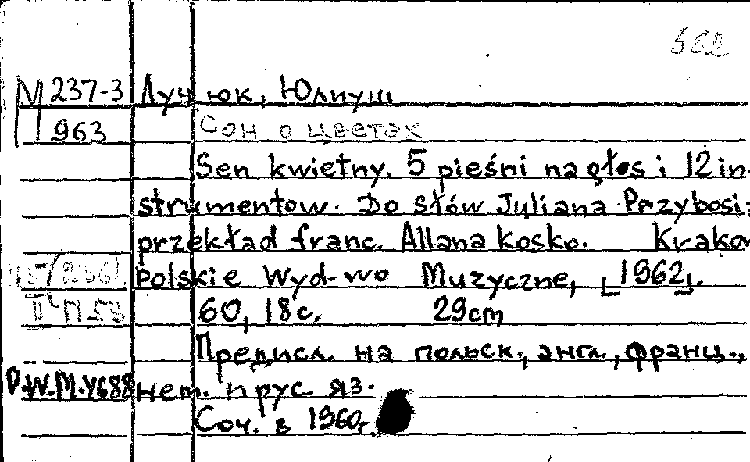 562
М 237-3 Лучюк, Юлиуш
963 Сон о цветах
Sen kwietny. 5 pieśni na głos i 12 in-
strumentow. Do słów Juliana Przybosi:
przekład franc. Allana Kosko. Krakow
Polskie Wyd-wo Muzyczne, [1962].
60, 18 с. 29 cm
Предисл. на польск., англ., франц.,
P.W.M. 4688 нем. и рус. яз.
Соч. в 1960г.